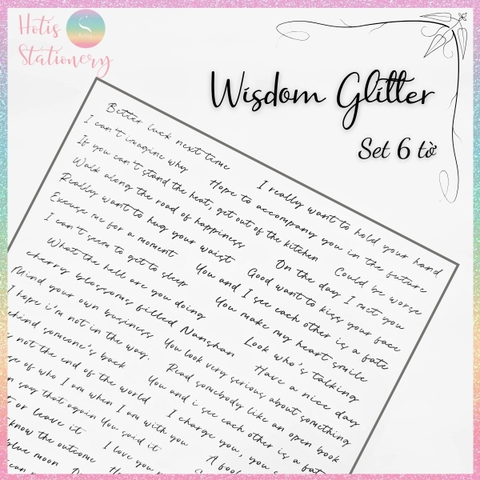 Hotis
Stationery
Wisdom Glitter
Set 6 tờ
Better luck next time I really want to hold your hand
I can't imagine why Hope to accompany you in the future
If you can't stand the heat, get out of the kitchen Could be worse
Walk along the road of happiness On the day I met you
Really want to hug your waist Good want to kiss your face
Excuse me for a moment You and I see each other is a fate
I can't seem to get to sleep You make my heart smile
What the hell are you doing Look who's talking
cherry blossoms filled Nanshan Have a nice day
Mind your own business You look very serious about something
I hope i'm not in the way. Read somebody like an open book
ehind someone's back You and i see each other is a fate
not the end of the world I charge you, you
of who I am when I am with you
say that again You said it
or leave it I love you
know the outcome
blue moon